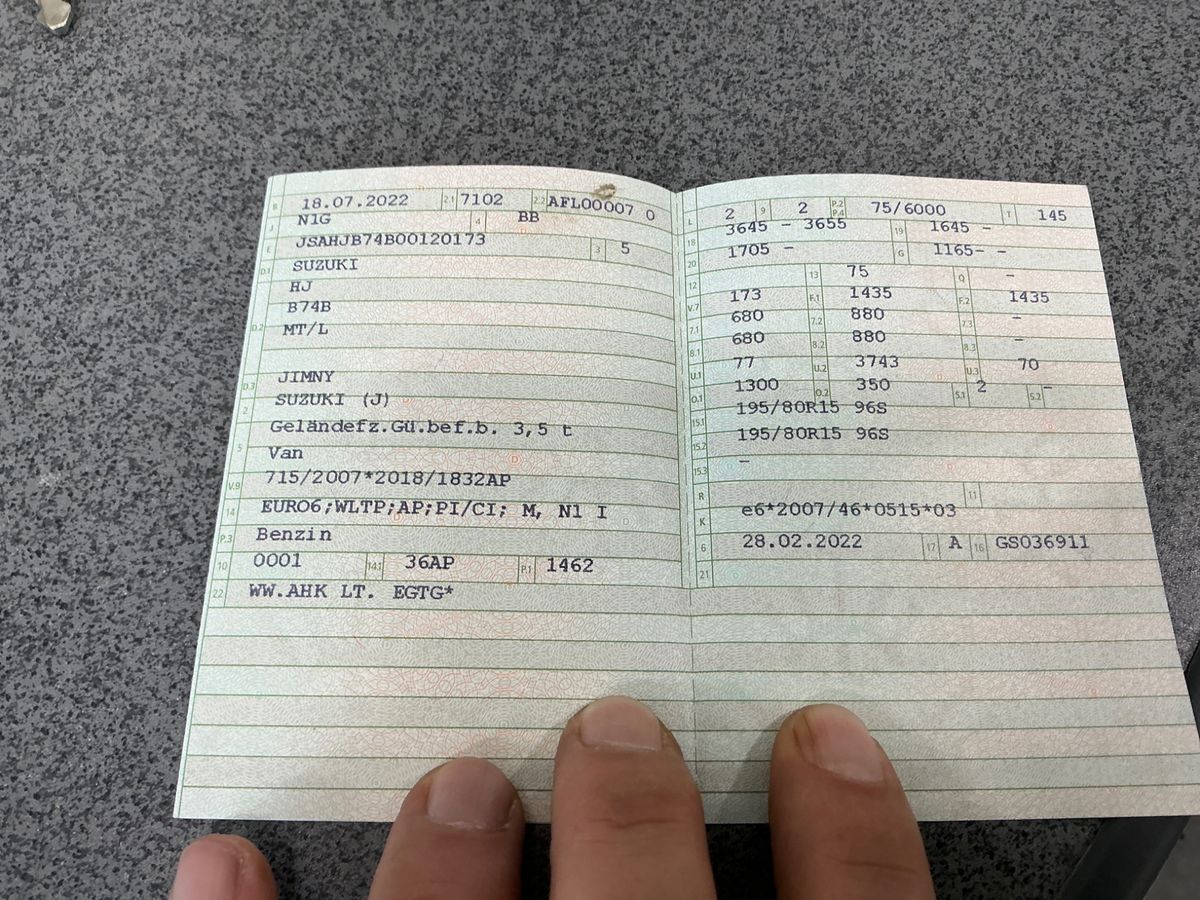 B 18.07.2022 2.1 7102 2.2 AFL00007 0
J N1G 4 BB
E JSAHJB74B00120173 3 5
D.1 SUZUKI
HJ
B74B
D.2 MT/L
D.3 JIMNY
2 SUZUKI (J)
5 Geländefz.Gü.bef.b. 3,5 t
Van
V.9 715/2007*2018/1832AP
14 EURO6;WLTP;AP;PI/CI; M, N1 I
P.3 Benzin
10 0001 14.1 36AP P.1 1462
22 WW.AHK LT. EGTG*
L 2 9 2 P.2 P.4 75/6000 T 145
18 3645 - 3655 19 1645 -
20 1705 - G 1165- -
12 13 75 Q -
V.7 173 F.1 1435 F.2 1435
7.1 680 7.2 880 7.3 -
8.1 680 8.2 880 8.3 -
U.1 77 U.2 3743 U.3 70
O.1 1300 O.2 350 S.1 2 S.2 -
15.1 195/80R15 96S
15.2 195/80R15 96S
15.3 -
R 11
K e6*2007/46*0515*03
6 28.02.2022 17 A 16 GS036911
21